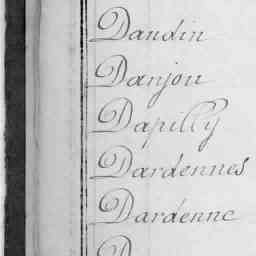 Dandin
Danjou
Dapilly
Dardennes
Dardenne
D